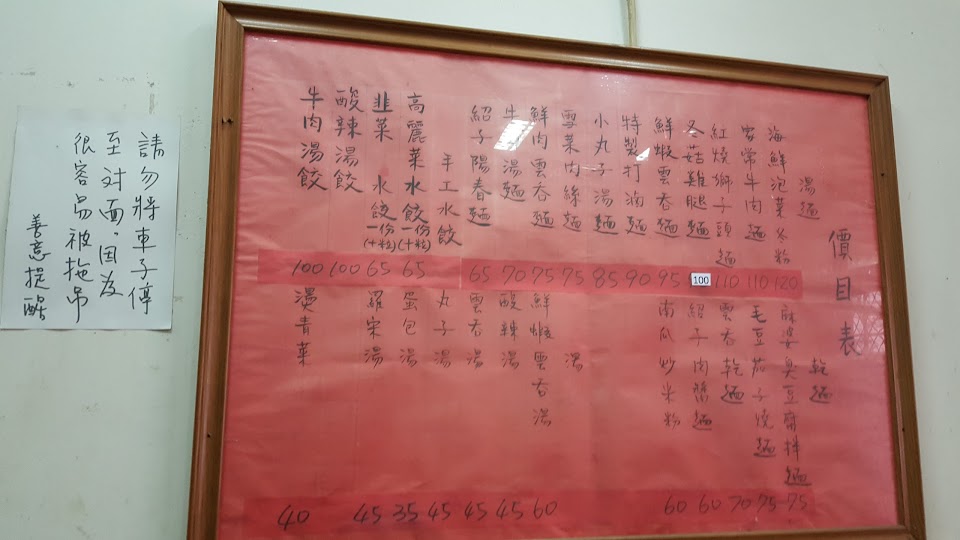 價目表
湯麵
海鮮泡菜冬粉 120
家常牛肉麵 110
紅燒獅子頭麵 110
冬菇雞腿麵 100
鮮蝦雲吞麵 95
特製打滷麵 90
小丸子湯麵 85
雪菜肉絲麵 75
鮮肉雲吞麵 75
牛 湯麵 70
紹子陽春麵 65
手工水餃
高麗菜水餃 一份(十粒) 65
韭菜水餃 一份(十粒) 65
酸辣湯餃 100
牛肉湯餃 100
乾麵
麻婆臭豆腐拌麵 75
毛豆茄子燒麵 75
雲吞乾麵 70
紹子肉醬麵 60
南瓜炒米粉 60
湯
鮮蝦雲吞湯 60
酸辣湯 45
雲吞湯 45
丸子湯 45
蛋包湯 35
羅宋湯 45
燙青菜 40
請勿將車子停
至对面,因为
很容易被拖吊
善意提醒